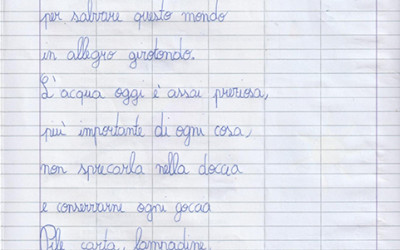 per salvare questo mondo
in allegro girotondo.
L'acqua oggi è assai preziosa,
più importante di ogni cosa,
non sprecarla nella doccia
e conservarne ogni goccia
Pile carta, lampadine,